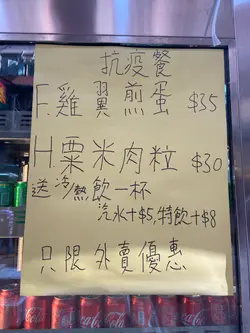 抗疫餐
F.雞翼煎蛋 $35
H.粟米肉粒 $30
送冷/熱飲一杯
汽水+$5,特飲+$8
只限外賣優惠
Coca-Cola